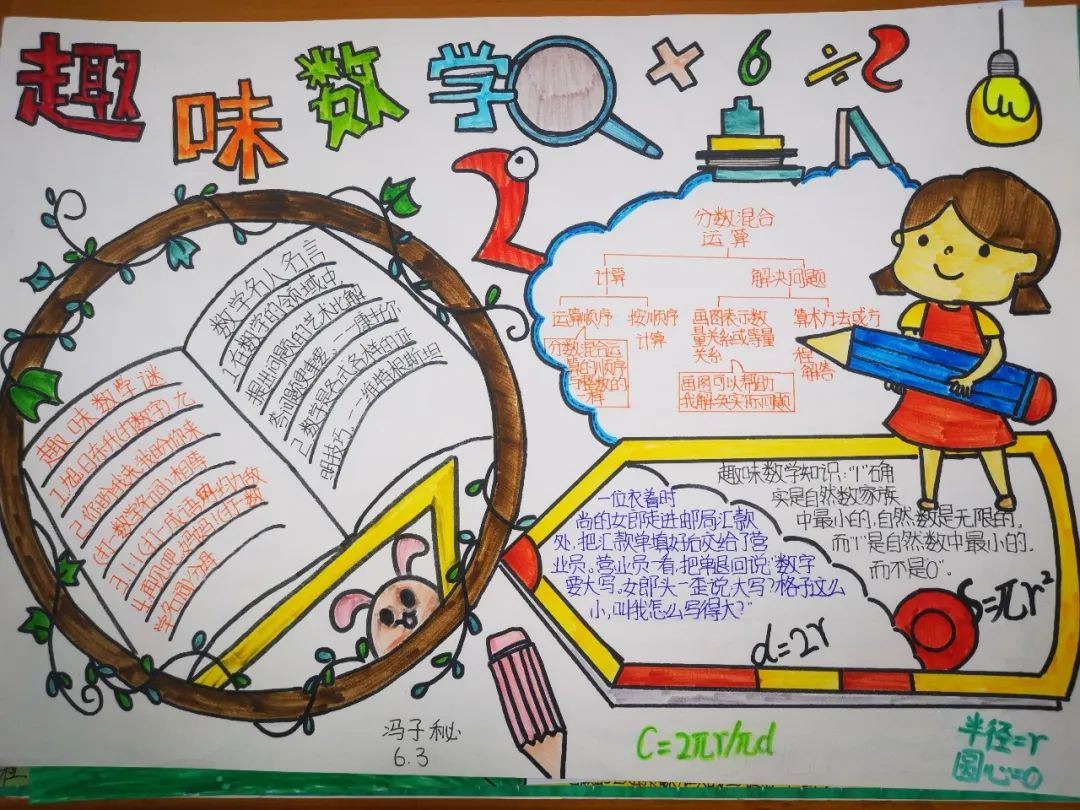 趣味数学
×6÷2
数学名人名言
1.在数学的领域中
提出问题的艺术比解
答问题更重要。——康托尔
2.数学是各式各样的证
明技巧。——维特根斯坦
趣味数学谜
1.旭日东升(打数字)九
2.你盼我来,我盼你来
(打一数学名词)相等
3.1:1(打一成语)势均力敌
4.再见吧,妈妈!(打一数
学名词)分母
分数混合
运算
计算
解决问题
运算顺序
按顺序
计算
画图表示数
量关系或等量
关系
算术方法或方
程
解答
分数混合运
算的顺序
与整数的
一样
画图可以帮助
我解决实际问题
一位衣着时
尚的女郎走进邮局汇款
处,把汇款单填好后交给了营
业员。营业员一看,把单退回说:"数字
要大写。女郎头一歪说:大写?格子这么
小,叫我怎么写得大?"
趣味数学知识:"1"确
实是自然数家族
中最小的,自然数是无限的,
而"1"是自然数中最小的.
而不是0".
S=πr²
d=2r
C=2πr/πd
半径=r
圆心=O
冯子秘
6.3